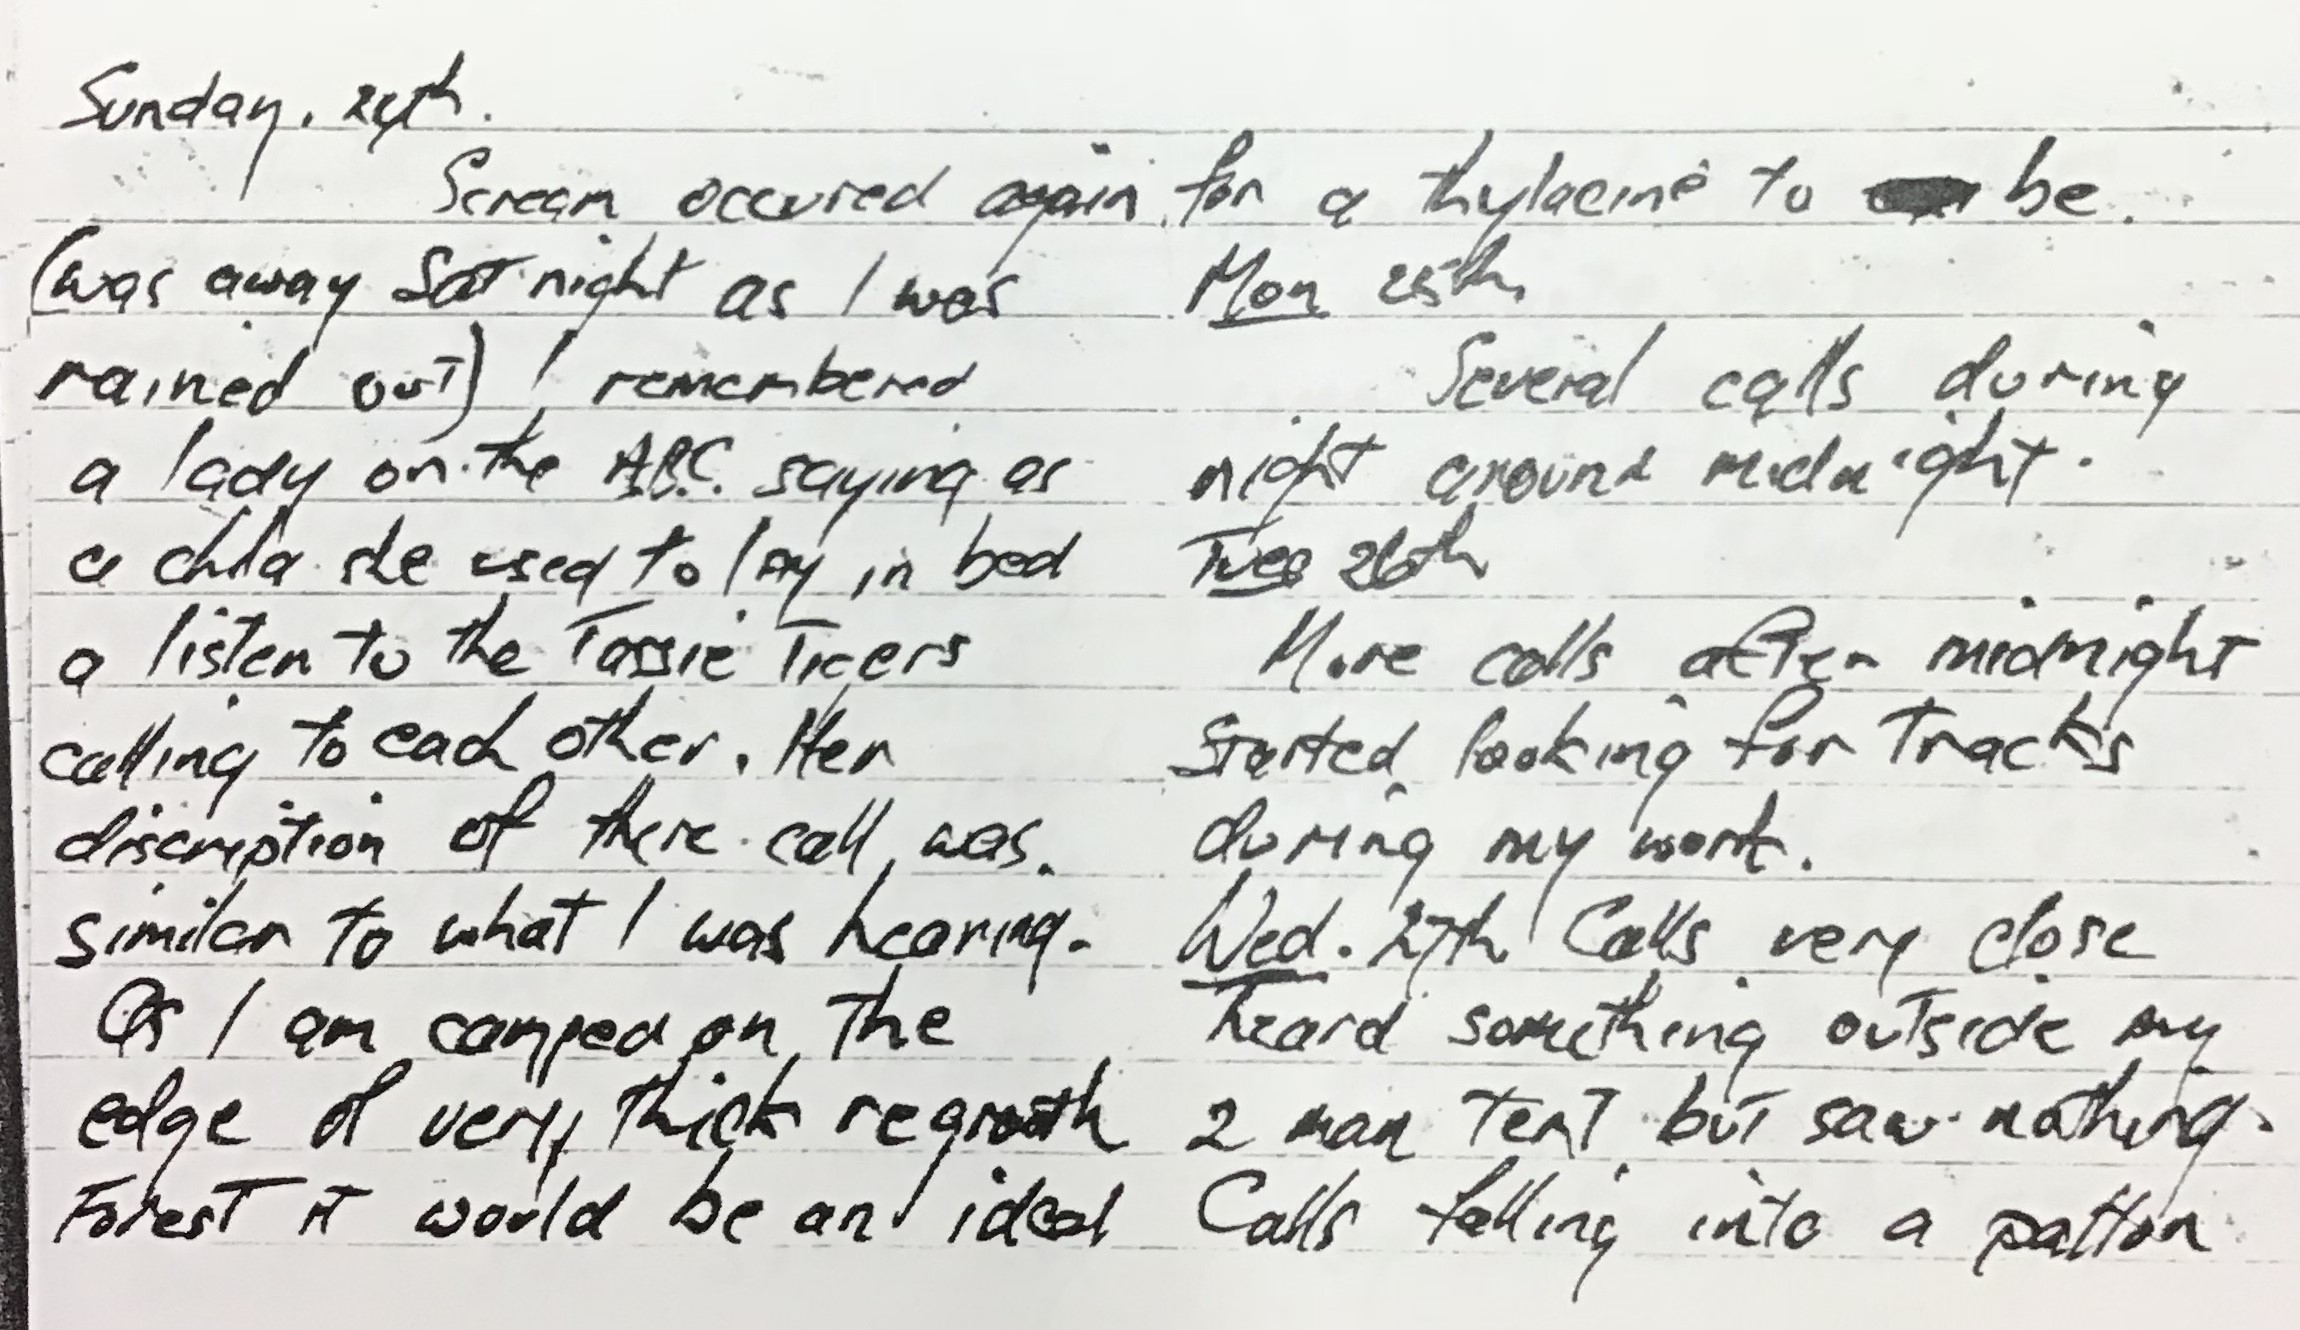 Sunday. 24th.
Scream occured again
(was away Sat night as I was
rained out) I remembered
a lady on the A.B.C. saying as
a child she used to lay in bed
a listen to the Tassie Tigers
calling to each other. Her
discription of there call was.
similar to what I was hearing.
As I am camped on the
edge of very thick regrowth
Forest it would be an ideal
for a thylacine to be.
Mon 25th
Several calls during
night around midnight.
Tues 26th
More calls after midnight
Started looking for tracks
during my work.
Wed. 27th Calls very close
heard something outside my
2 man tent but saw nothing.
Calls falling into a patton